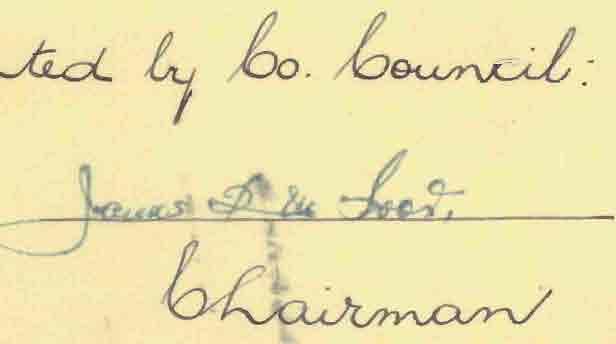 ted by Co. Council:
James
Chairman